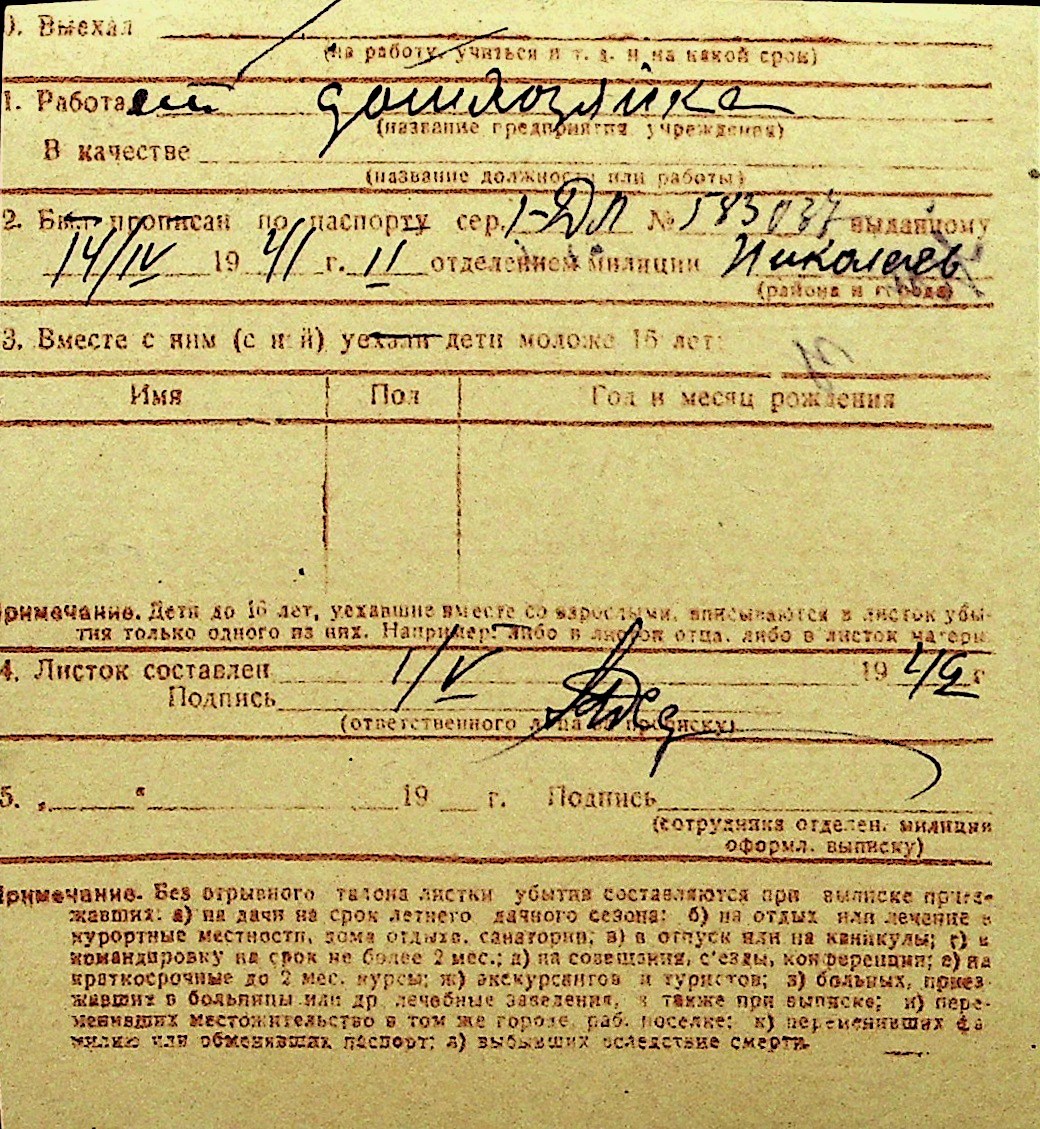 0. Выехал
(на работу, учиться и т. д. и на какой срок)
1. Работает домхозяйка
(название предприятия, учреждения)
В качестве
(название должности или работы)
2. Был прописан по паспорту сер. I-ДЛ № 583037 выданному
14/IV 19 41 г. II отделением милиции Николаев
(района и города)
3. Вместе с ним (с ней) уехали дети моложе 16 лет:
Имя Пол Год и месяц рождения
Примечание. Дети до 16 лет, уехавшие вместе со взрослыми, вписываются в листок убы-
тия только одного из них. Например: либо в листок отца, либо в листок матери.
4. Листок составлен 1/V 19 г.
Подпись
(ответственного лица за прописку)
5. „ “ 19 г. Подпись
(сотрудника отделен. милиции
оформл. выписку)
Примечание. Без отрывного талона листки убытия составляются при выписке приез-
жавших: а) на дачи на срок летнего дачного сезона; б) на отдых или лечение в
курортные местности, дома отдыха, санатории; в) в отпуск или на каникулы; г) в
командировку на срок не более 2 мес.; д) на совещания, с'езды, конференции; е) на
краткосрочные до 2 мес. курсы; ж) экскурсантов и туристов; з) больных, приез-
жавших в больницы или др. лечебные заведения, а также при выписке; и) пере-
менивших местожительство в том же городе, раб. поселке; к) переменивших фа-
милию или обменявших паспорт; л) выбывших вследствие смерти.